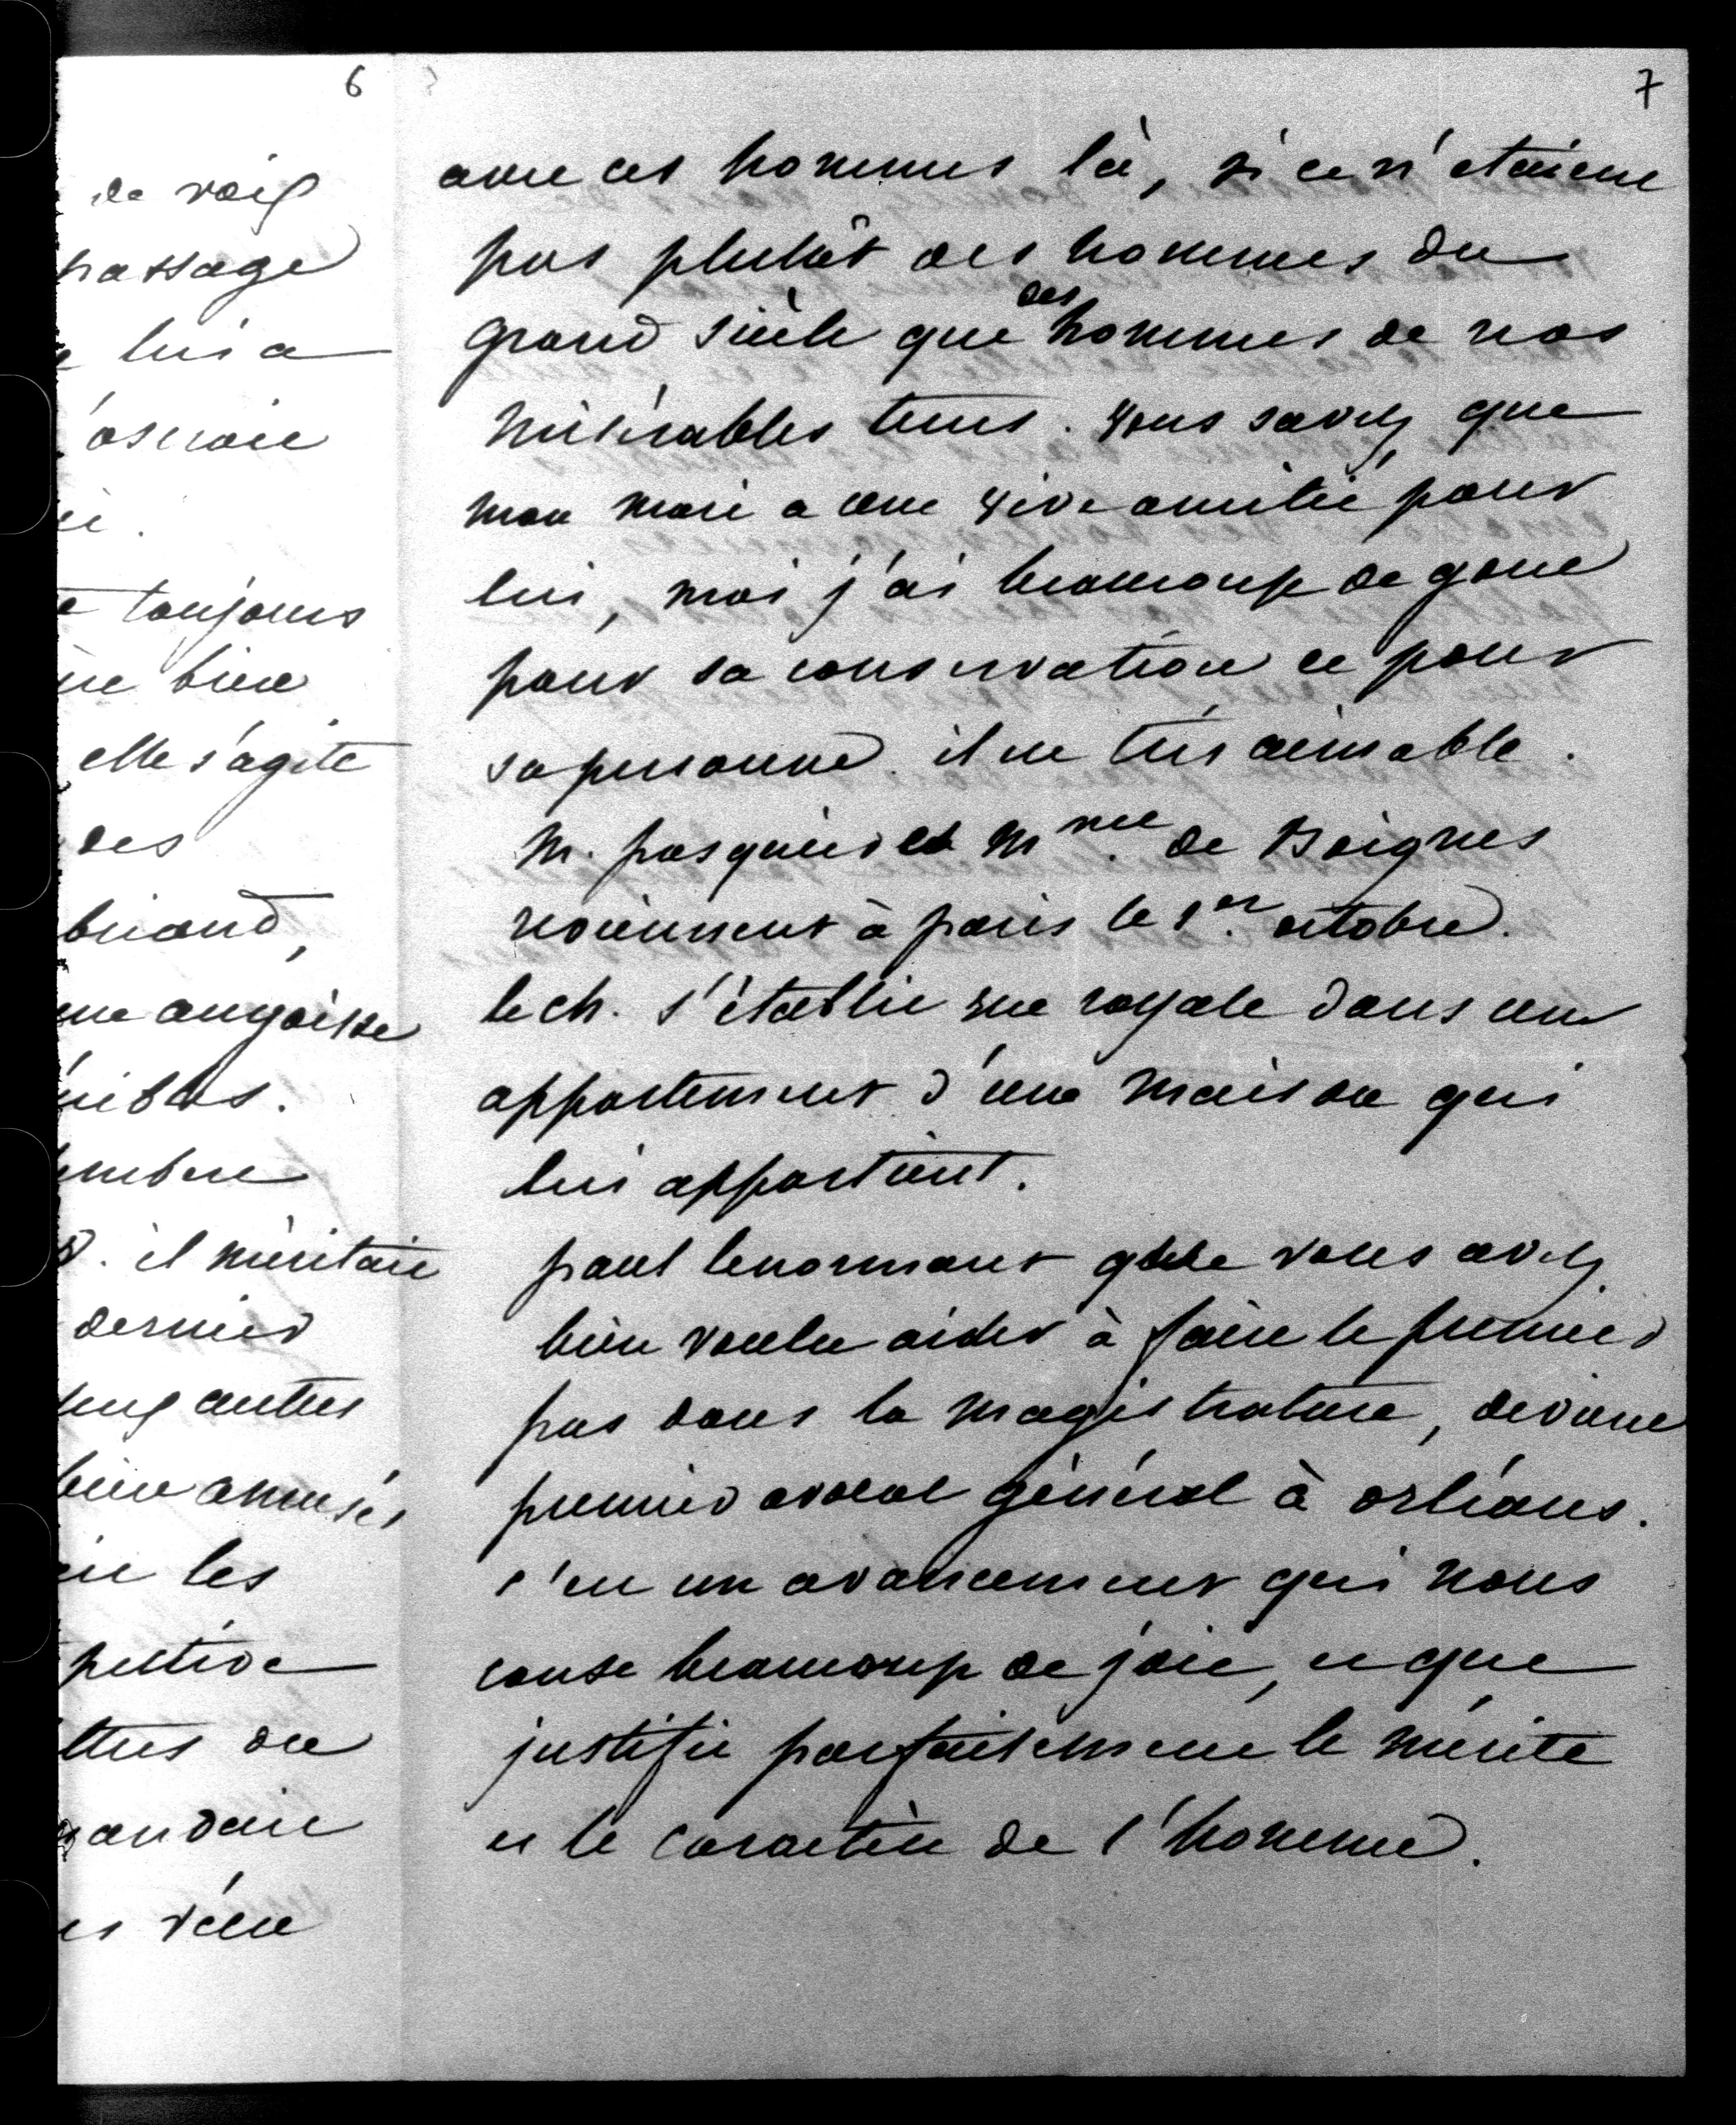 6
de voix
passage
lui a
oserait
toujours
bien
elle s'agite
des
briand,
angoisse
nibles.
embre
. il méritait
dernier
autres
bien amusés
les
pective
ttres du
andait
vécu
7
avec ces hommes là, si ce n'etaient
pas plutôt des hommes du
grand siècle que des hommes de nos
misérables tems. Vous savez que
mon mari a une vive amitié pour
lui, moi j'ai beaucoup de gout
pour sa conservation et pour
sa personne. il est très aimable.
M. pasquier et Mme. de Boignes
reviennent à paris le 1er. octobre.
le ch. s'établit rue royale dans un
appartement d'une maison qui
lui appartient.
paul lenormant que vous avez
bien voulu aider à faire le premier
pas dans la magistrature, devient
premier avocat général à orléans.
c'est un avancement qui nous
cause beaucoup de joie, et que
justifie parfaitement le mérite
et le caractère de l'homme.